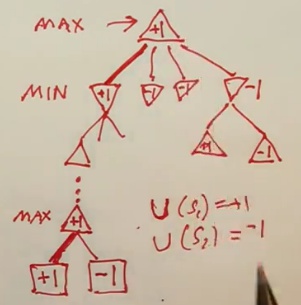 MAX → +1
MIN +1 -1 -1 -1
+1 -1
MAX +1 U(S₁) = +1
U(S₂) = -1
+1 -1